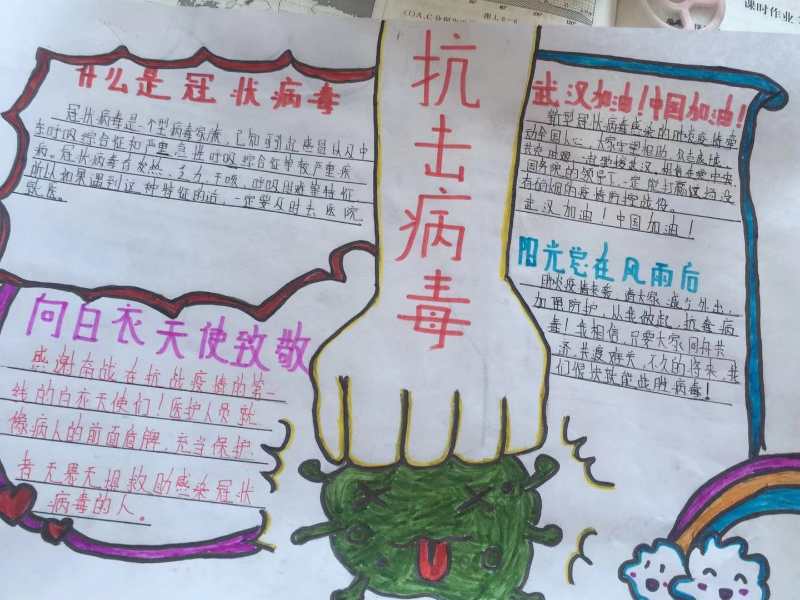 课时作业
什么是冠状病毒
冠状病毒是一个型病毒家族，已知到起感冒以及中
东呼吸综合征和严重急性呼吸综合征等较严重疾
病。冠状病毒有发热、乏力、干咳、呼吸困难等特征
所以如果遇到这种特征的话，一定要及时去医院
就医。
向白衣天使致敬
感谢奋战在抗战疫情的第一
线的白衣天使们！医护人员就
像病人的前面盾牌，充当保护
者无畏无惧救助感染冠状
病毒的人。
抗击病毒
武汉加油！中国加油！
新型冠状病毒感染的肺炎疫情牵
国务院的领导下，一定能打赢这场没
有硝烟的疫情防控战役！
武汉加油！中国加油！
阳光总在风雨后
肺炎疫情来袭，请大家减少外出，
加强防护，从我做起，抗毒病
毒！我相信，只要大家同舟共
济，共渡难关，不久的将来，我
们很快就能战胜病毒！